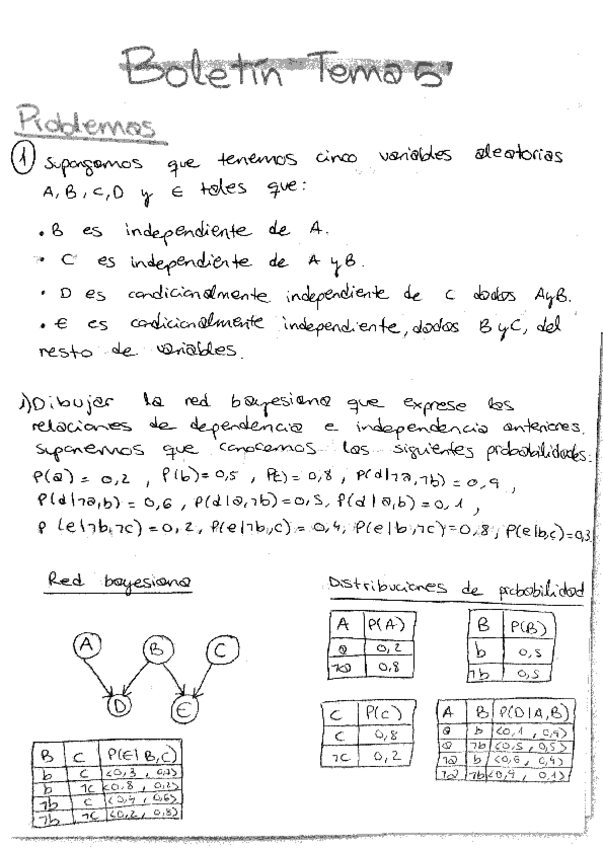 Boletín Tema 5
Problemas
① Supongamos que tenemos cinco variables aleatorias
A, B, C, D y E tales que:
• B es independiente de A.
• C es independiente de A y B.
• D es condicionalmente independiente de C dados A y B.
• E es condicionalmente independiente, dados B y C, del
resto de variables.
1) Dibujar la red bayesiana que exprese las
relaciones de dependencia e independencia anteriores.
Suponemos que conocemos las siguientes probabilidades:
P(a) = 0,2 , P(b) = 0,5 , P(c) = 0,8 , P(d|¬a,¬b) = 0,9 ,
P(d|¬a,b) = 0,6 , P(d|a,¬b) = 0,5, P(d|a,b) = 0,1 ,
P(e|¬b,¬c) = 0,2 , P(e|¬b,c) = 0,4, P(e|b,¬c) = 0,8, P(e|b,c) = 0,3
Red bayesiana
Distribuciones de probabilidad
A B C
D E
A P(A)
a 0,2
¬a 0,8
B P(B)
b 0,5
¬b 0,5
C P(C)
c 0,8
¬c 0,2
A B P(D|A,B)
a b <0,1 , 0,9>
a ¬b <0,5 , 0,5>
¬a b <0,6 , 0,4>
¬a ¬b <0,9 , 0,1>
B C P(E|B,C)
b c <0,3 , 0,7>
b ¬c <0,8 , 0,2>
¬b c <0,4 , 0,6>
¬b ¬c <0,2 , 0,8>